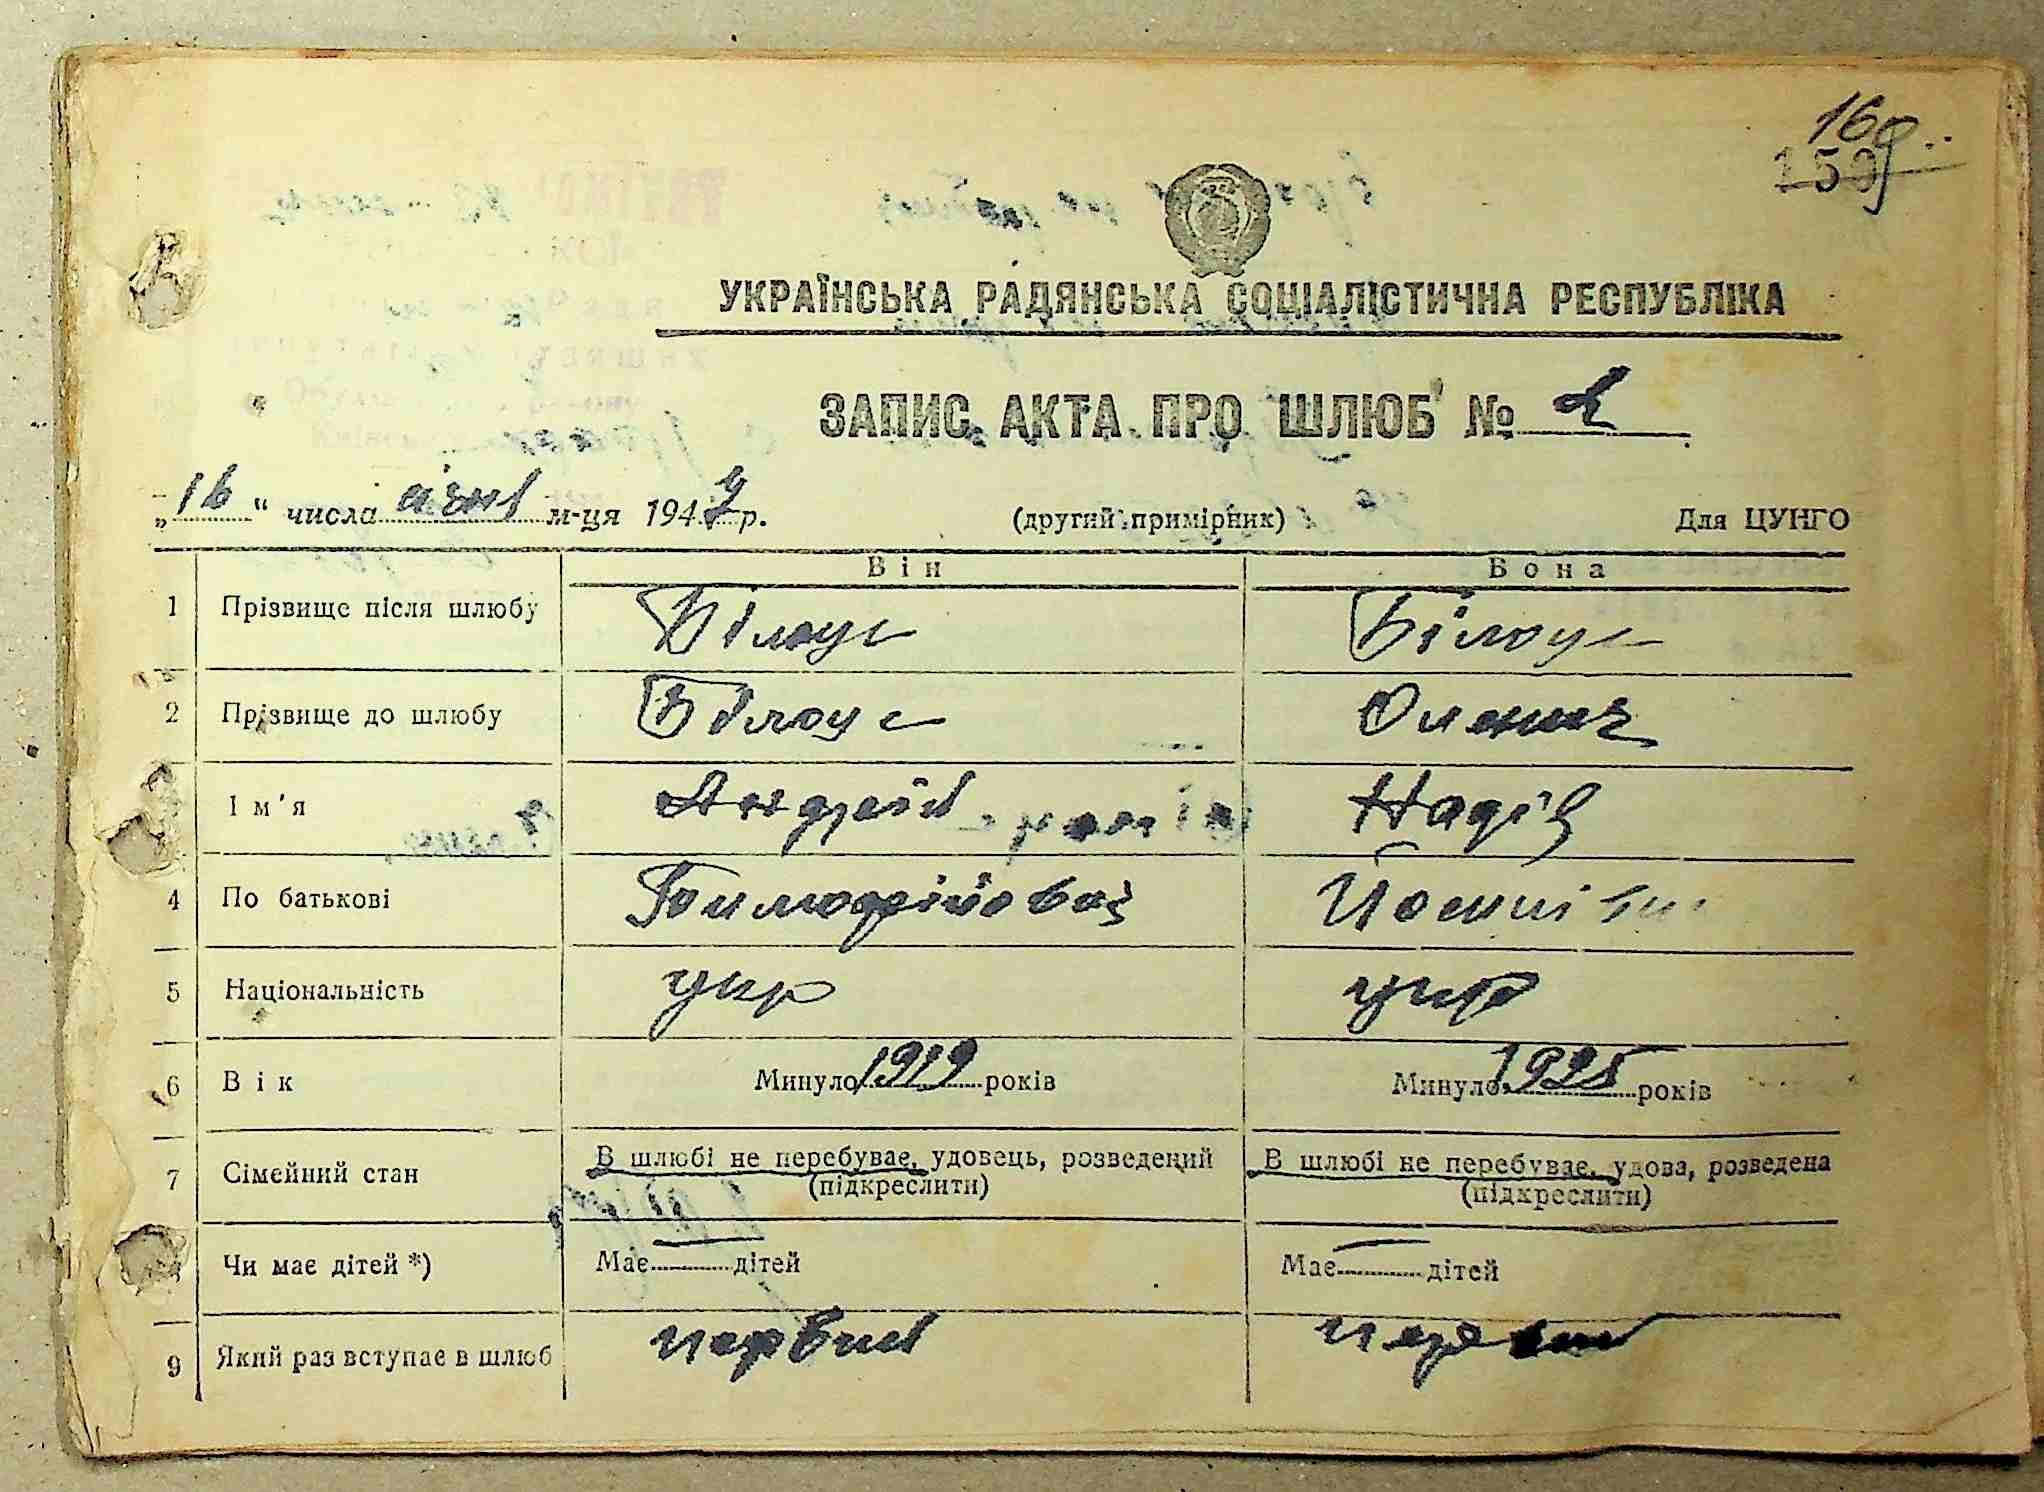 16
159
УКРАЇНСЬКА РАДЯНСЬКА СОЦІАЛІСТИЧНА РЕСПУБЛІКА
ЗАПИС АКТА ПРО ШЛЮБ №
„16“ числа січня м-ця 1947 р. (другий примірник) Для ЦУНГО
Він Вона
1 Прізвище після шлюбу Білоус Білоус
2 Прізвище до шлюбу Білоус
Ім'я Андрей Надія
4 По батькові Тимофійович
5 Національність укр укр
6 Вік Минуло 1919 років Минуло 1925 років
7 Сімейний стан В шлюбі не перебуває, удовець, розведений (підкреслити) В шлюбі не перебуває, удова, розведена (підкреслити)
Чи має дітей *) Має — дітей Має — дітей
9 Який раз вступає в шлюб первий первий